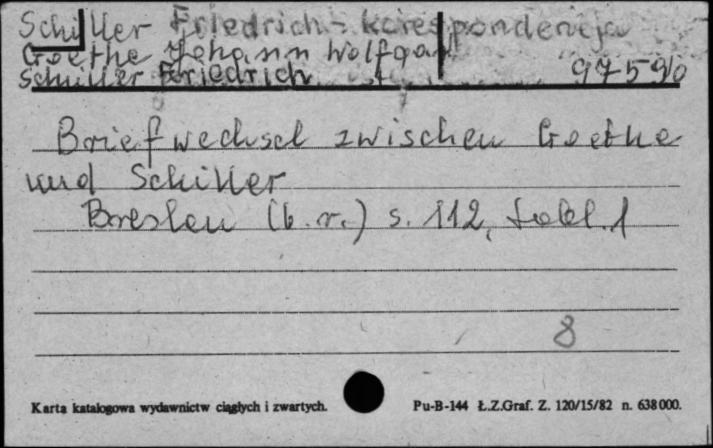 Schiller Friedrich - korespondencja
Goethe Johann Wolfgan
Schiller Friedrich 97590
Briefwechsel zwischen Goethe
und Schiller
Breslau (b.r.) s. 112, tabl. 1
8
Karta katalogowa wydawnictw ciągłych i zwartych. Pu-B-144 Ł.Z.Graf. Z. 120/15/82 n. 638000.